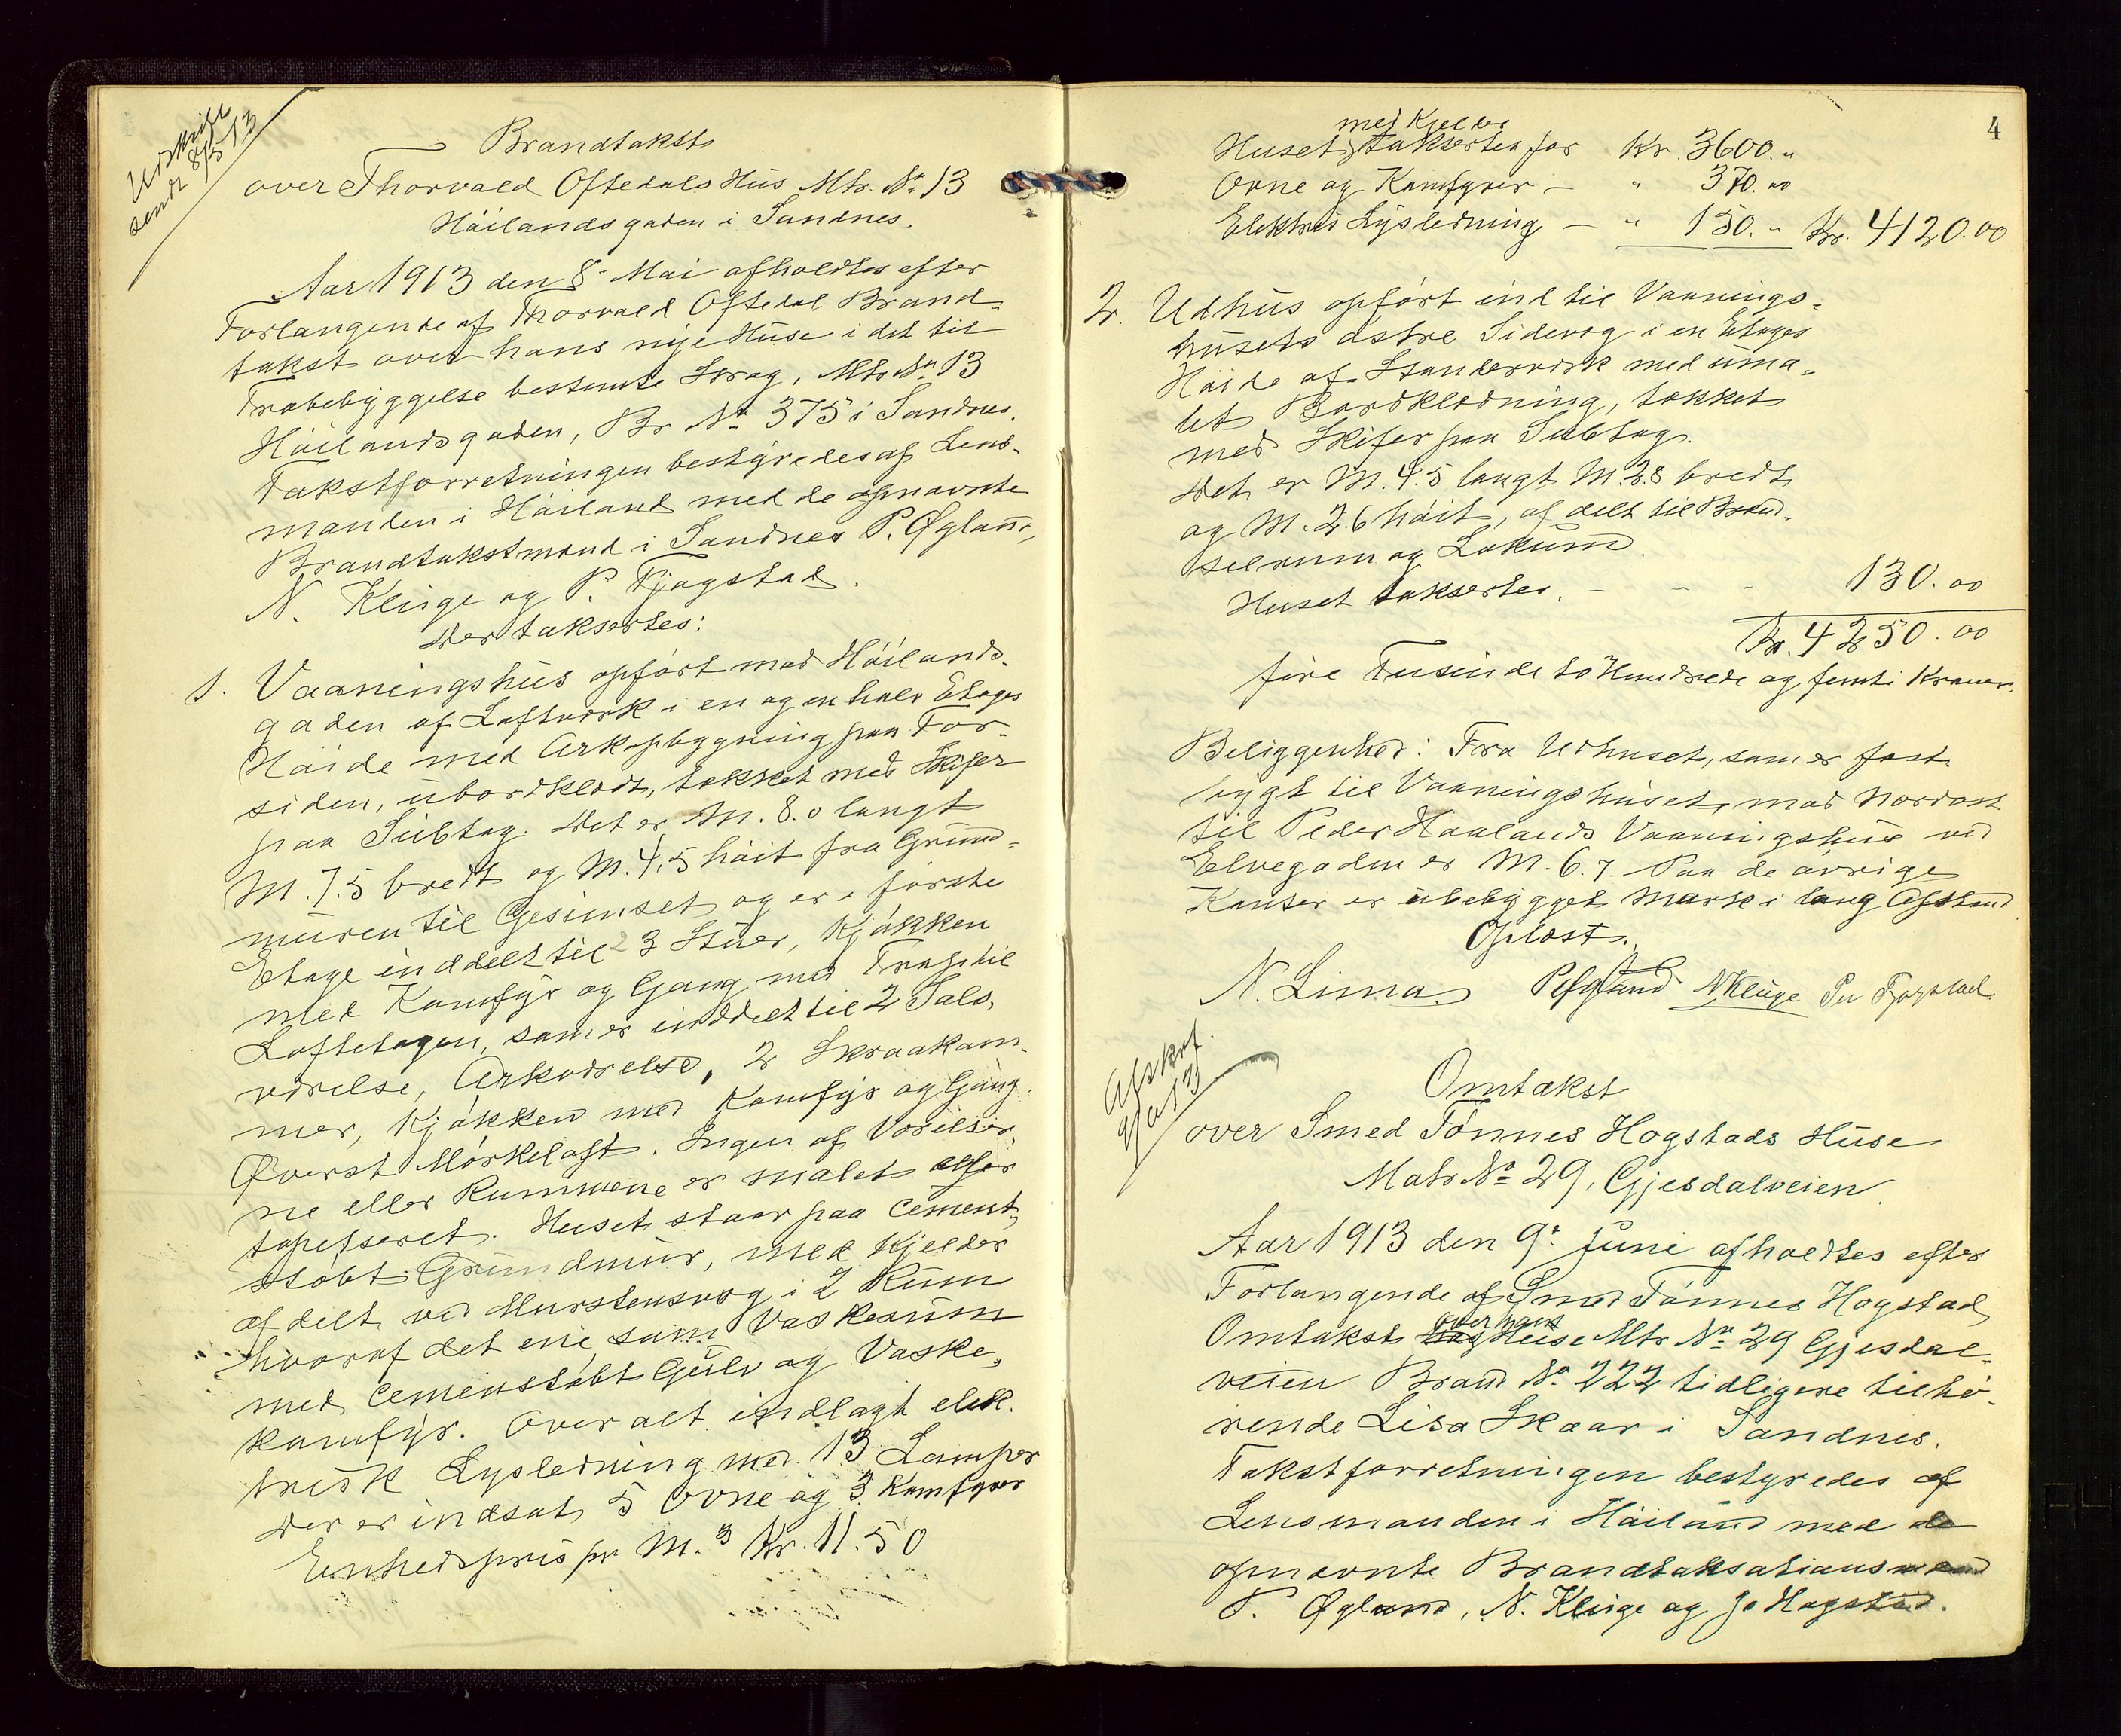 Udskrift
sendt 8/5 13
Brandtakst
over Thorvald Oftedals Hus Mtr. No 13
Höilandsgaden i Sandnes.
Aar 1913 den 8. Mai afholdtes efter
Forlangende af Thorvald Oftedal Brand-
takst over hans nye Huse i det til
Træbebyggelse bestemte Strøg, Mtr. No 13
Höilandsgaden, Br No 375 i Sandnes.
Takstforretningen bestyredes af Lens-
manden i Höiland med de opnævnte
Brandtakstmænd i Sandnes P. Øglænd,
N. Kluge og P. Fjogstad.
Der taksertes:
1. Vaaningshus opfört mod Höilands-
gaden af Loftværk i en og en halv Etages
Höide med Arkopbygning paa For-
siden, ubordklædt, tækket med Skifer
paa Subtag. Det er M. 8.0 langt
M. 7.5 bredt og M. 4.5 höit fra Grund-
muren til Gesimset og er i förste
Etage inddelt til 3 Stuer, Kjökken
med Komfyr og Gang med Trap til
Loftetagen, som er inddelt til 2 Sals-
værelse, Arkværelse, 2 Skraakam-
mer, Kjökken med Komfyr og Gang.
Øverst Mörkeloft. Ingen af Værelser-
ne eller Rummene er malet eller
tapetseret. Huset staar paa cement-
stöbt Grundmur, med Kjelder
afdelt ved Murstensvæg i 2 Rum
hvoraf det ene som Vaskerum
med cementstöbt Gulv og Vaske-
komfyr. Overalt indlagt elek-
trisk Lysledning med 13 Lamper
Der er indsat 5 Ovne og 3 Komfyrer
Enhedspris pr M.3 Kr. 11.50
4
med Kjelder
Huset taksertes for Kr. 3600. "
Ovne og Komfyrer - " 370. 00
Elektris Lysledning - " 150. " Kr. 4120.00
2. Udhus opfört ind til Vaanings-
husets östre Sidevæg i en Etages
Höide af Stenderværk med uma-
let Bordklædning, tækket
med Skifer paa Subtag.
Det er M. 4.5 langt M. 2.8 bredt
og M. 2.6 höit, afdelt til Brænd-
selrum og Lokum.
Huset taksertes. - - - 130. 00
Kr. 4250. 00
fire Tusinde to Hundrede og femti Kroner.
Beliggenhed: Fra Udhuset, som er fast-
bygt til Vaaningshuset, mod Nordost
til Peder Haalands Vaaningshus ved
Elvegaden er M. 6.7. Paa de övrige
Kanter er ubebygget Mark i lang Afstand
Oplæst.
N. Lima P Øglænd N Kluge Per Fjogstad.
Afskr.
9/6 13
Omtakst
over Smed Tönnes Hogstads Huse
Matr No 29, Gjesdalveien.
Aar 1913 den 9. Juni afholdtes efter
Forlangende af Smed Tönnes Hogstad
over hans
Omtakst Huse Mtr. No 29 Gjesdal-
veien Brand No. 222 tidligere tilhö-
rende Lisa Skaar i Sandnes.
Takstforretningen bestyredes af
Lensmanden i Höiland med de
opnævnte Brandtaksationsmænd
P. Øglænd, N. Kluge og Jo Hogstad.